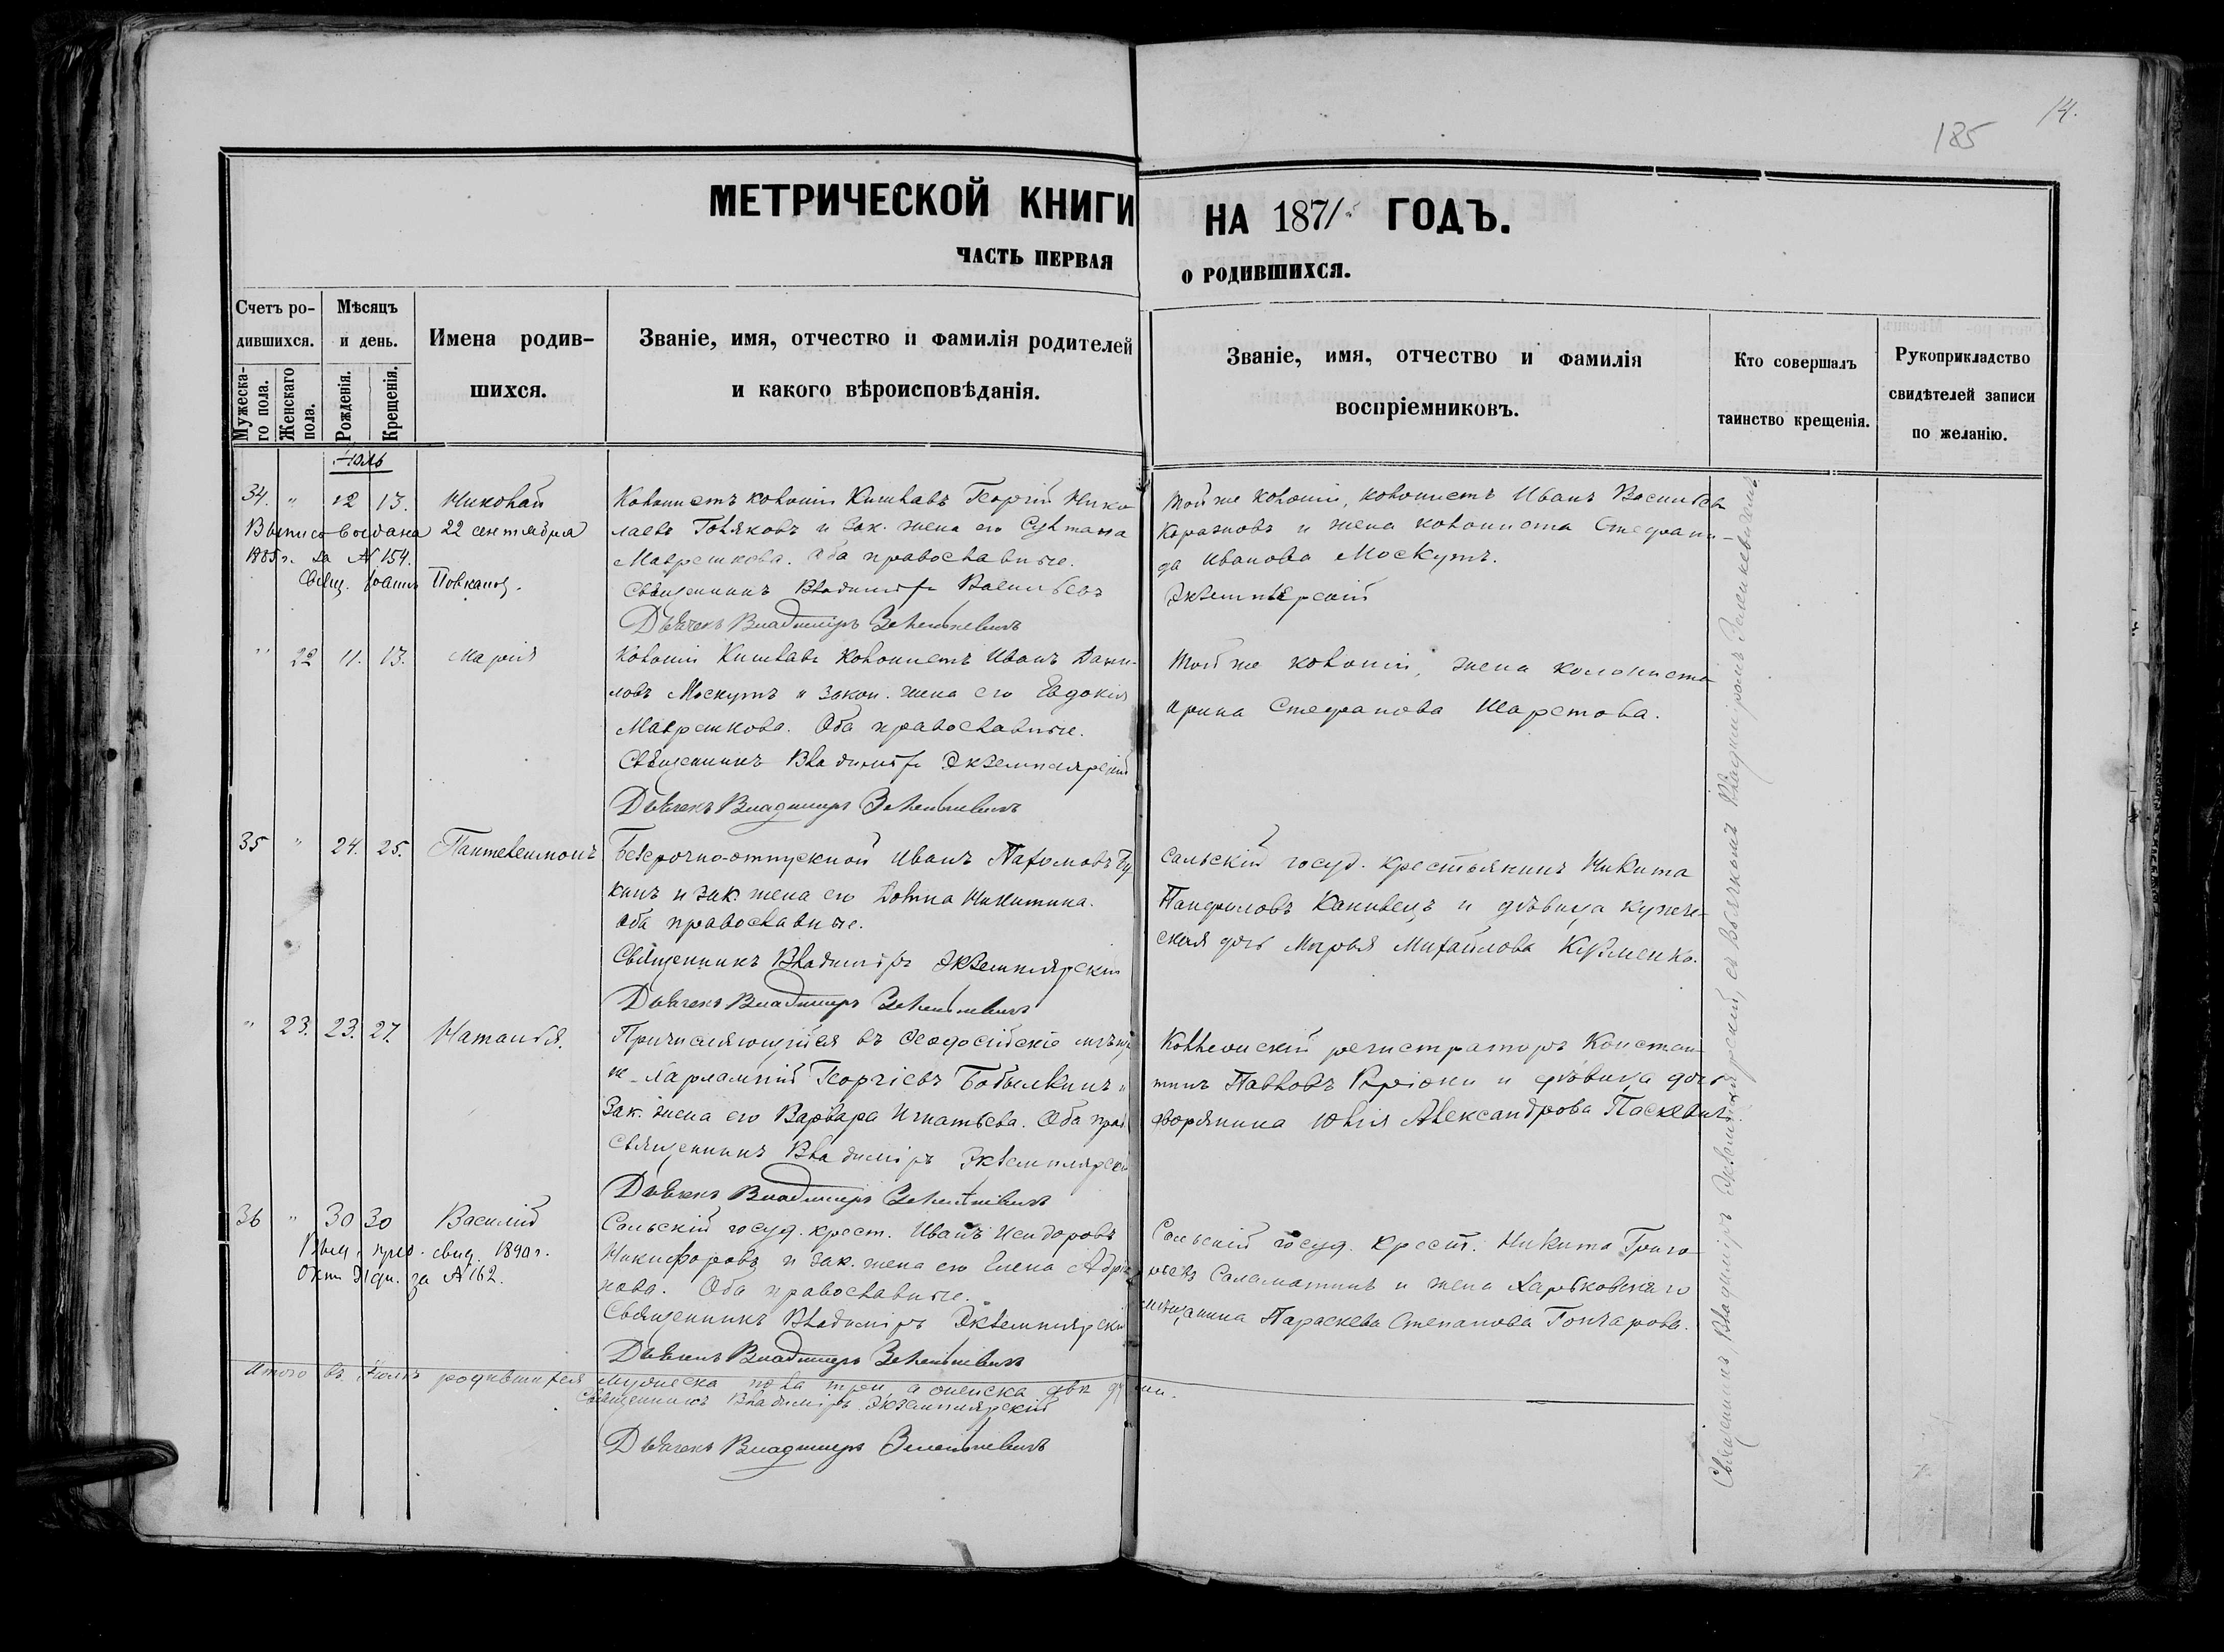 14.
185
МЕТРИЧЕСКОЙ КНИГИ НА 1871 ГОДЪ.
ЧАСТЬ ПЕРВАЯ О РОДИВШИХСЯ.
Счетъ ро-
дившихся.
Мужеска-
го пола.
Женскаго
пола.
Мѣсяцъ
и день.
Рожденія.
Крещенія.
Имена родив-
шихся.
Званіе, имя, отчество и фамилія родителей
и какого вѣроисповѣданія.
Званіе, имя, отчество и фамилія
воспріемниковъ.
Кто совершалъ
таинство крещенія.
Рукоприкладство
свидѣтелей записи
по желанію.
Іюль
34. " 12 13. Николай
Выпись выдана 22 сентября
1885 г. за № 154.
Свящ. Іоаннъ
Колонистъ колоніи Кишлавъ Георгій Нико
лаевъ Голяковъ и зак. жена его Султана
Маврешкова. Оба православные.
Священникъ Владиміръ
Дьячекъ Владимиръ Зеленкевичъ
Той же колоніи, колонистъ Иванъ Васильевъ
и жена колониста Стефани-
да Иванова Москутъ.
Экземплярскій
" 22 11. 13. Марія
Колоніи Кишлавъ колонистъ Иванъ Дани-
ловъ Москутъ и закон. жена его Евдокія
Маврешкова. Оба православные.
Священникъ Владиміръ Экземплярскій
Дьячекъ Владимиръ Зеленкевичъ
Той же колоніи, жена колониста
Ирина Стефанова Шаретова.
35 " 24. 25. Пантелеимонъ
Безсрочно-отпускной Иванъ Пахомовъ Бу
кинъ и зак. жена его Домна Никитина.
Оба православные.
Священникъ Владиміръ Экземплярскій
Дьячекъ Владимиръ Зеленкевичъ
Сальскій госуд. крестьянинъ Никита
Панфиловъ Каневецъ и дѣвица купече-
ская дочь Марья Михайлова Кузменко.
" 23. 23. 27. Наталья.
Причисляющійся въ Феодосійскіе мѣща
не Харлампій Георгіевъ Бобылкинъ и
зак. жена его Варвара Игнатьева. Оба прав
Священникъ Владиміръ Экземплярскій
Дьячекъ Владимиръ Зеленкевичъ
Коллежскій регистраторъ Констан-
тинъ Павловъ и дѣвица дочь
дворянина Юлія Александрова Паскевичъ.
36 " 30 30 Василій
Выд. свид. 1890 г.
Окт. за № 162.
Сальскій госуд. крест. Иванъ Исидоровъ
Никифоровъ и зак. жена его Елена Адріа
нова. Оба православные.
Священникъ Владиміръ Экземплярскій
Дьячекъ Владимиръ Зеленкевичъ
Сальскій госуд. крест. Никита Григо-
рьевъ Саламатинъ и жена Харьковскаго
мѣщанина Параскева Степанова Гончарова.
Итого въ Іюлѣ родившихся мужеска пола три, а женска двѣ души.
Священникъ Владиміръ Экземплярскій
Дьячекъ Владимиръ Зеленкевичъ
Священникъ Владиміръ Экземплярскій, съ дьячкомъ Владиміромъ Зеленкевичемъ